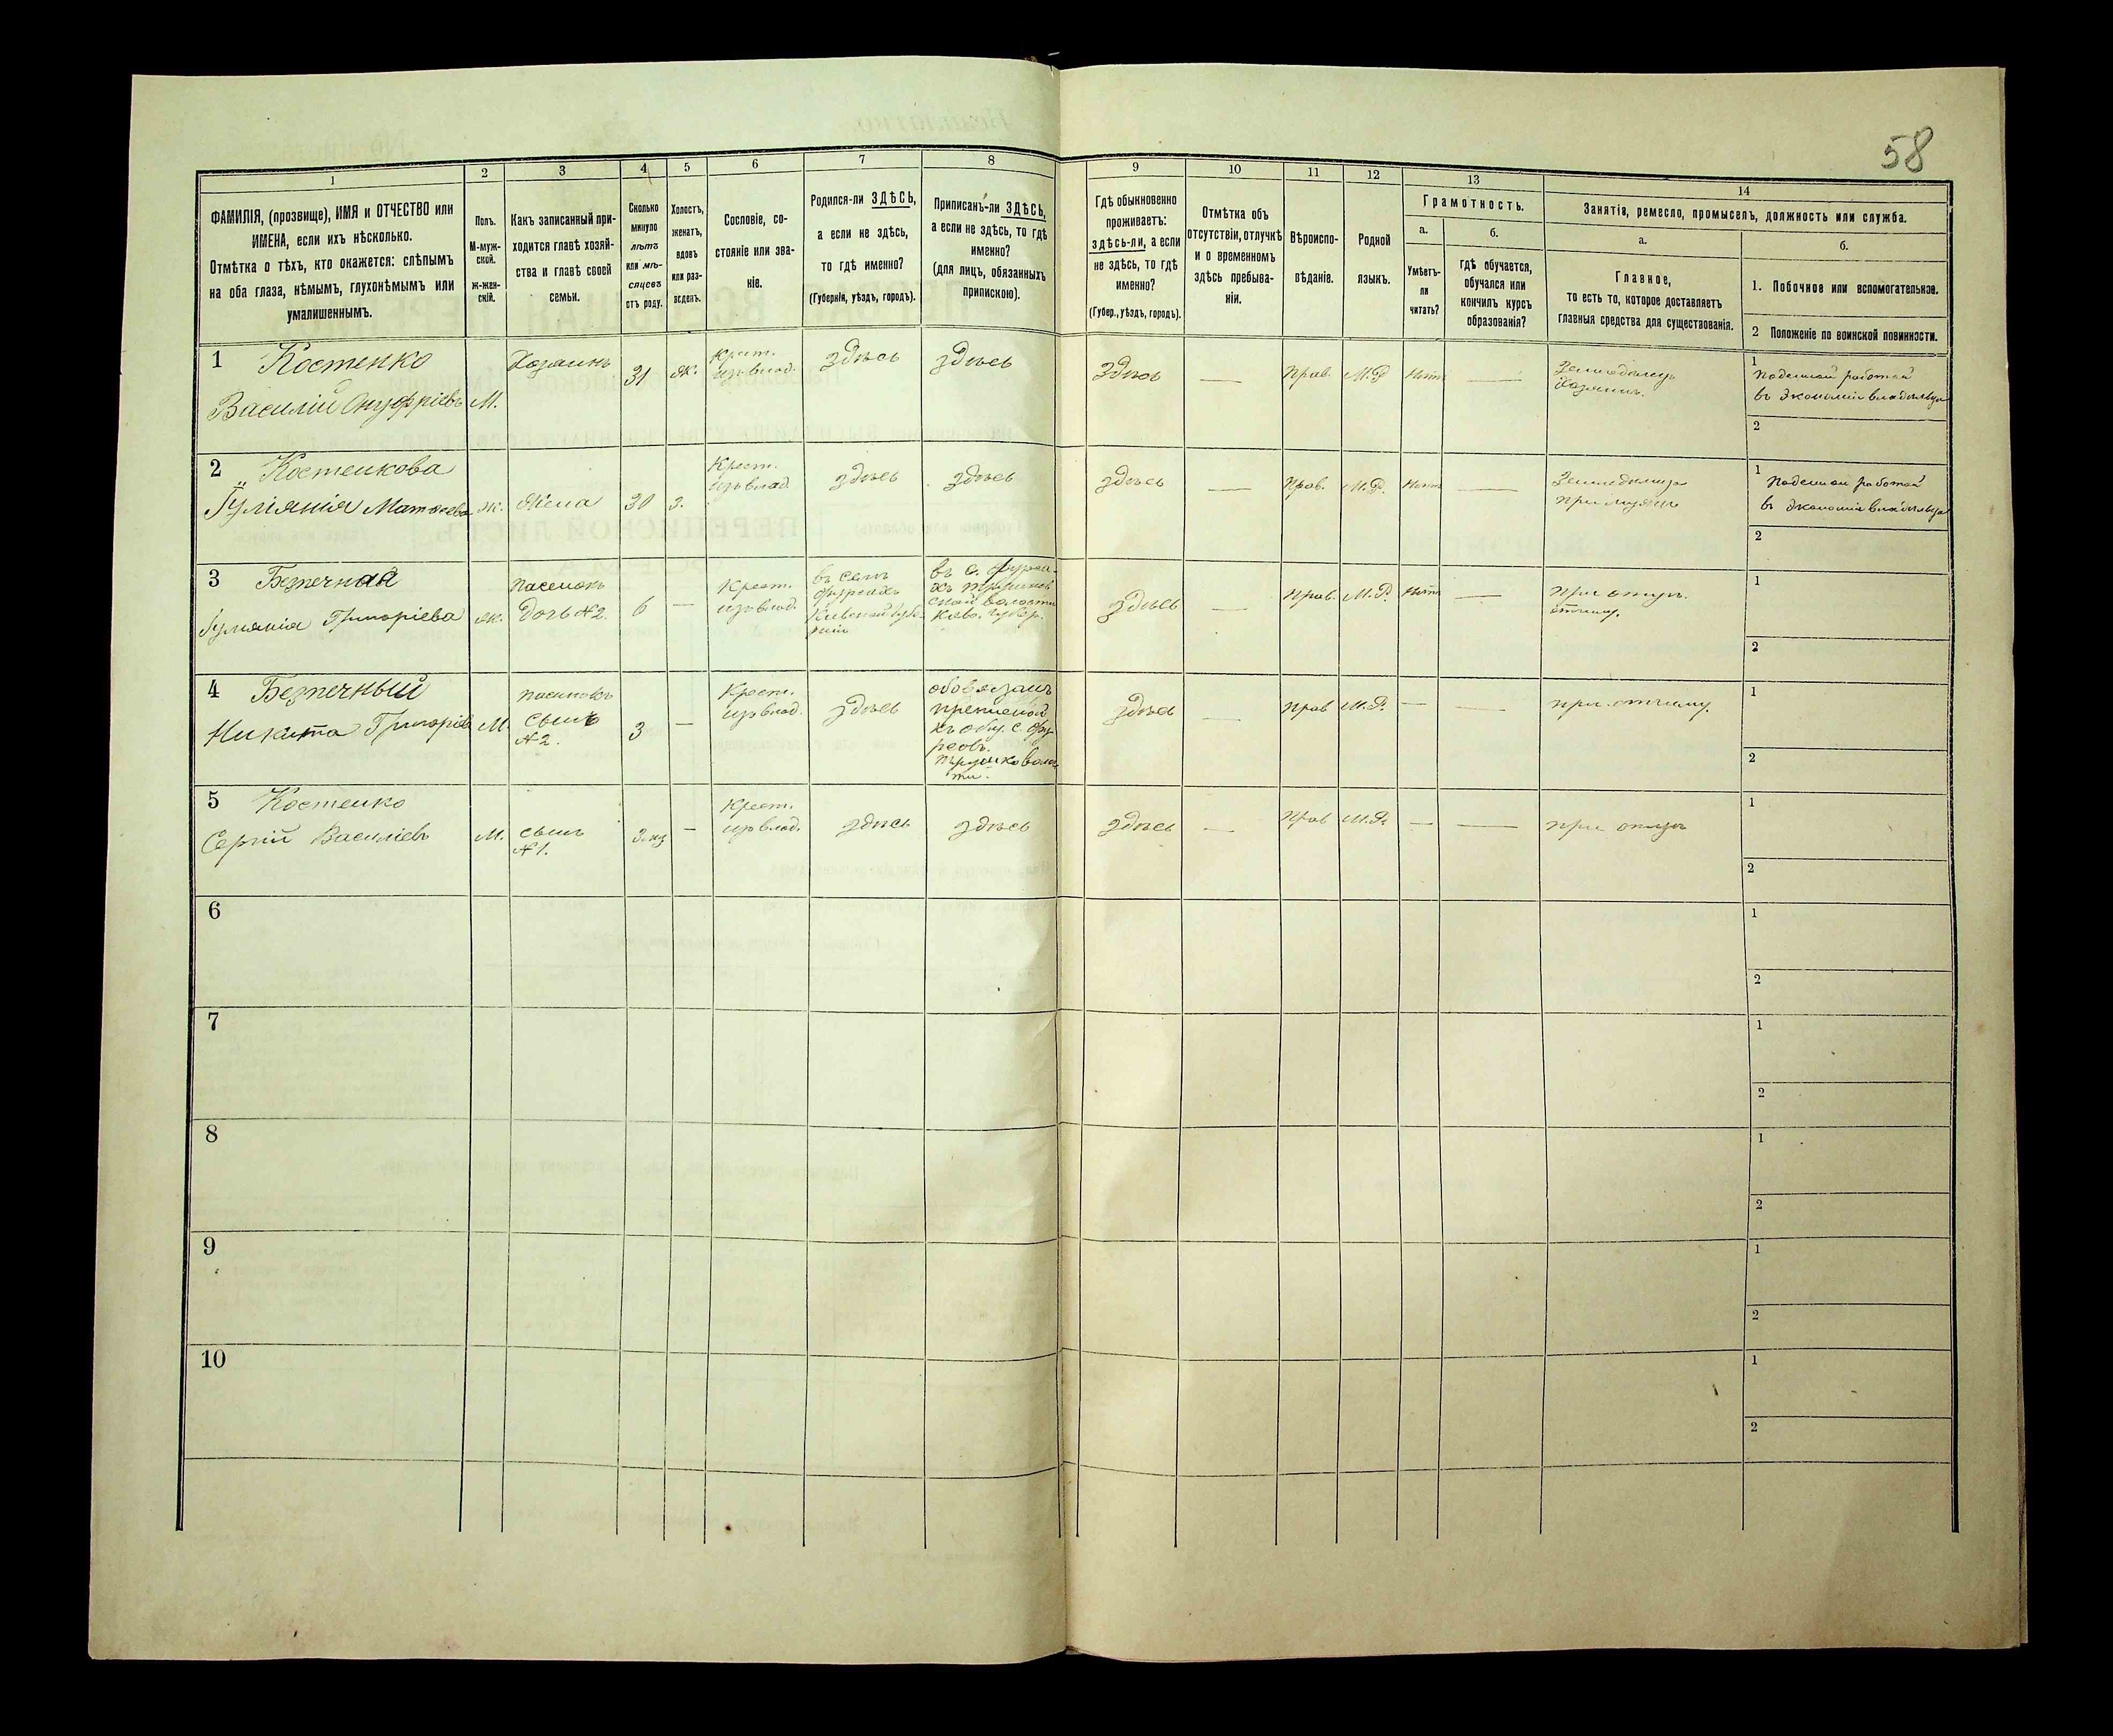 58
1
2
3
4
5
6
7
8
9
10
11
12
13
14
ФАМИЛІЯ, (прозвище), ИМЯ и ОТЧЕСТВО или
ИМЕНА, если ихъ нѣсколько.
Отмѣтка о тѣхъ, кто окажется: слѣпымъ
на оба глаза, нѣмымъ, глухонѣмымъ или
умалишеннымъ.
Полъ.
М-муж-
ской.
ж-жен-
скій.
Какъ записанный при-
ходится главѣ хозяй-
ства и главѣ своей
семьи.
Сколько
минуло
лѣтъ
или мѣ-
сяцевъ
отъ роду.
Холостъ,
женатъ,
вдовъ
или раз-
веденъ.
Сословіе, со-
стояніе или зва-
ніе.
Родился-ли ЗДѢСЬ,
а если не здѣсь,
то гдѣ именно?
(Губернія, уѣздъ, городъ).
Приписанъ-ли ЗДѢСЬ,
а если не здѣсь, то гдѣ
именно?
(для лицъ, обязанныхъ
припискою).
Гдѣ обыкновенно
проживаетъ:
здѣсь-ли, а если
не здѣсь, то гдѣ
именно?
(Губер., уѣздъ, городъ).
Отмѣтка объ
отсутствіи, отлучкѣ
и о временномъ
здѣсь пребыва-
ніи.
Вѣроиспо-
вѣданіе.
Родной
языкъ.
Грамотность.
а.
Умѣетъ-
ли
читать?
б.
гдѣ обучается,
обучался или
кончилъ курсъ
образованія?
Занятія, ремесло, промыселъ, должность или служба.
а.
Главное,
то есть то, которое доставляетъ
главныя средства для существованія.
б.
1. Побочное или вспомогательное.
2 Положеніе по воинской повинности.
1 Костенко
Василій Онуфріевъ
М.
Хозяинъ
31
ж.
Крест.
изъ влад.
здѣсь
здѣсь
здѣсь
—
Прав.
М.Р.
Нѣтъ
—
Земледѣлецъ
Хозяинъ.
1
Поденной работой
въ экономіи владѣльца
2
2 Костенкова
Гуліянія Матвѣева
ж.
Жена
30
з.
Крест.
изъ влад.
здѣсь
здѣсь
здѣсь
—
Прав.
М.Р.
Нѣтъ
—
при мужѣ
1
Поденной работой
въ экономіи владѣльца
2
3 Безпечная
Гуліянія Григоріева
ж.
дочь №2.
6
—
Крест.
изъ влад.
въ селѣ
Кіевской губе-
рніи
въ с.
волости
губер.
здѣсь
—
Прав.
М.Р.
Нѣтъ
—
при
отчиму.
1
2
4 Безпечный
Никита Григоріев
М.
пасынокъ
сынъ
№2.
3
—
Крест.
изъ влад.
здѣсь
къ общ. с.
здѣсь
—
Прав
М.Р.
—
—
при отчиму.
1
2
5 Костенко
Сергій Василіевъ
М.
сынъ
№1.
3. мѣ
—
Крест.
изъ влад.
здѣсь
здѣсь
здѣсь
—
Прав
М.Р.
—
—
при отцѣ
1
2
6
1
2
7
1
2
8
1
2
9
1
2
10
1
2